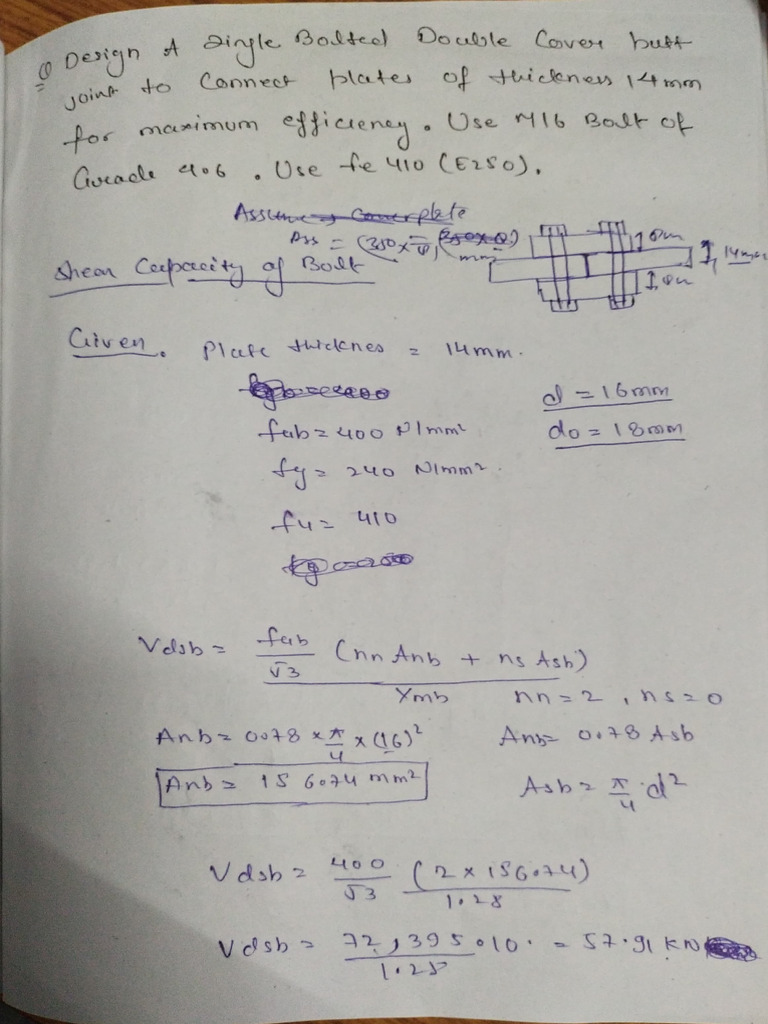 Q Design A Single Bolted Double Cover butt
joint to Connect plates of thickness 14mm
for maximum efficiency. Use M16 Bolt of
Grade 4.6 . Use fe 410 (E250).
= (250 ×
mm
14mm
Shear Capacity of Bolt
Given. Plate thicknes = 14mm.
d = 16mm
fub = 400 N/mm²
do = 18mm
fy = 240 N/mm².
fu = 410
Vdsb = fub/√3 (nn Anb + ns Asb)
γmb nn = 2 , ns = 0
Anb = 0.78 × π/4 × (16)² Anb = 0.78 Asb
Anb = 156.74 mm² Asb = π/4 d²
Vdsb = 400/√3 (2 × 156.74)/1.25
Vdsb = 72,395.10/1.25 = 57.91 KN